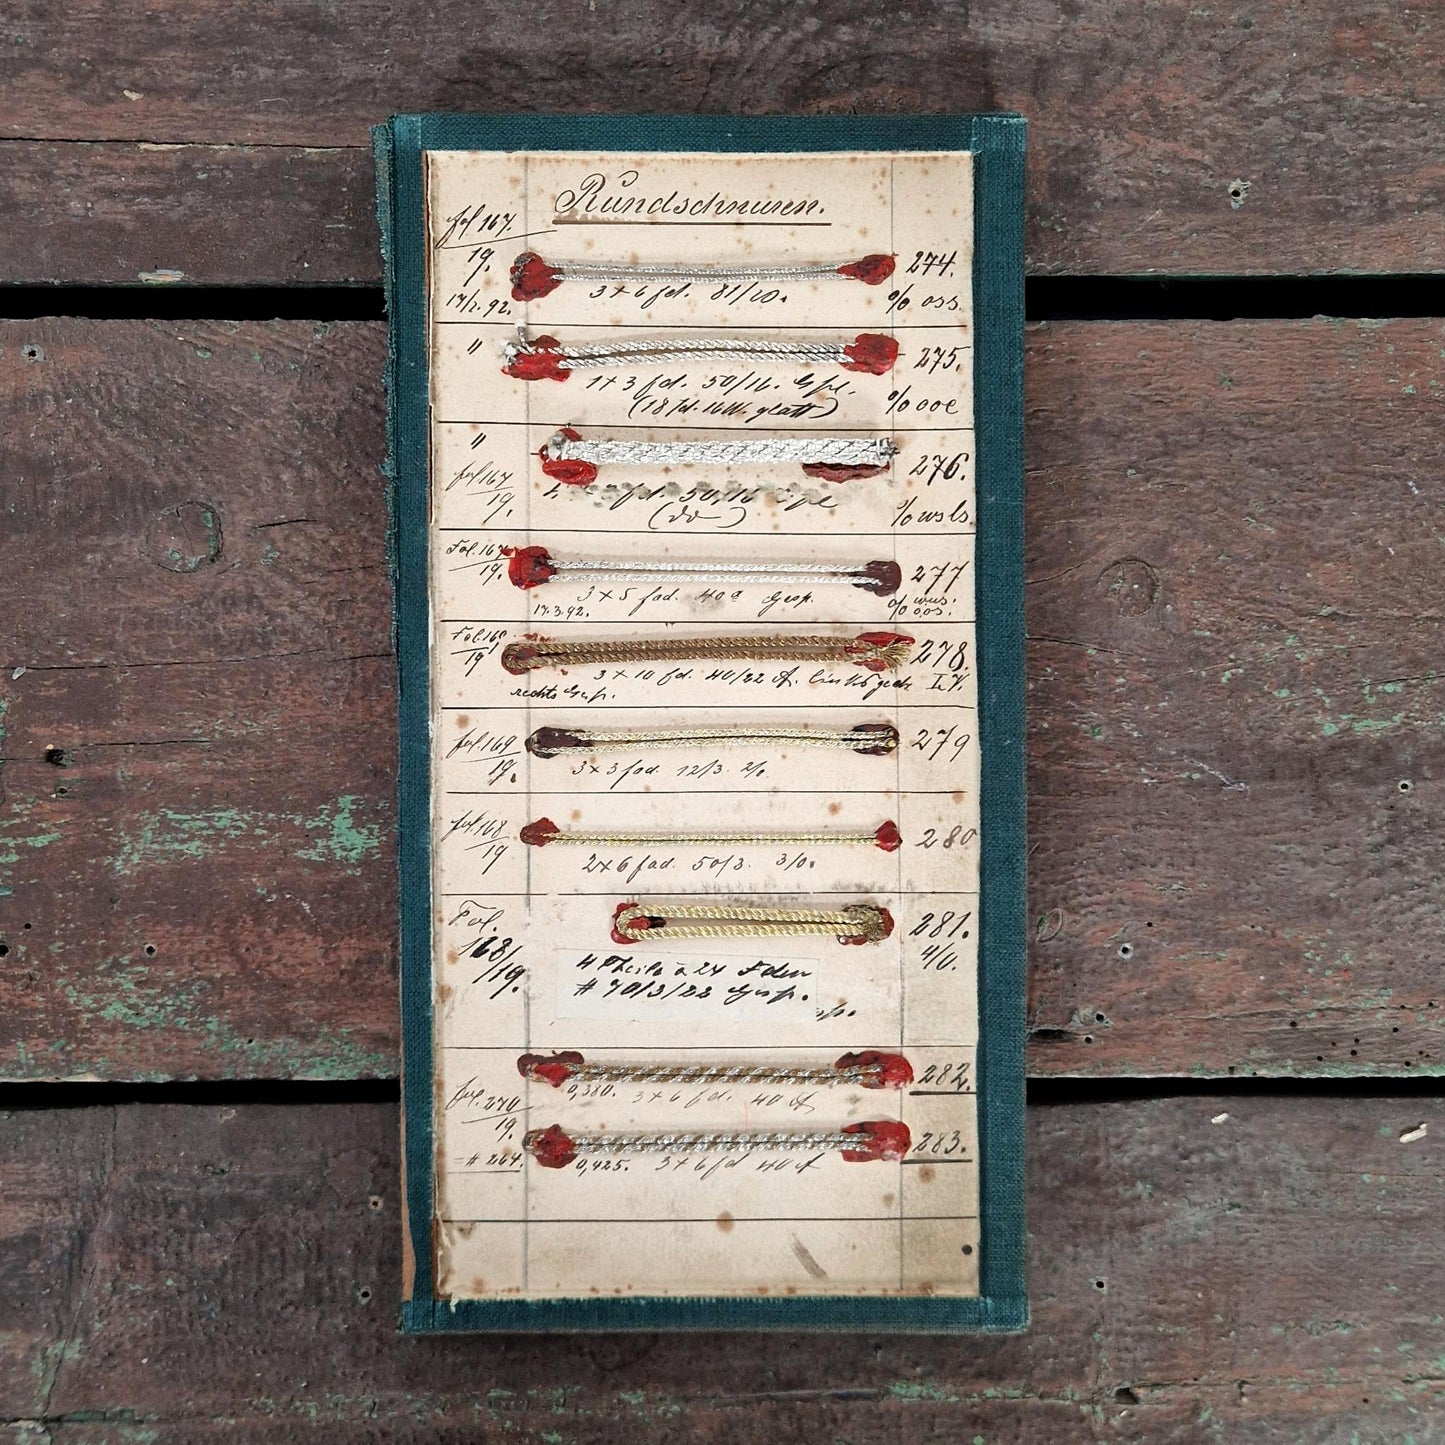 Rundschnuren.
fol 167.
19. 274.
17/2. 92. 3 + 6 fd. 81/10. % oss.
" 275.
1 + 3 fd. 50/16. Gspl. % ooe
(18 fd. 16W. glatt)
" 276.
fol 167
19. fd. 50/16 % wsls.
(do)
Fol. 167 277
19. 3 x 5 fad. 40 a Gesp. wus.
17.3.92. % oos.
Fol. 169 278.
19 3 x 10 fd. 40/22 A. links gedr I.V.
rechts Gesp.
fol. 169 279
19. 3 x 3 fad. 12/3. 2/0.
fol. 168 280
19 2 x 6 fad. 50/3. 3/0.
Fol. 281.
168/ 4/0.
/19. 4 Theile a 24 Faden
# 70/3/22 Gesp.
282.
0,380. 3 + 6 fd. 40 A
fol. 270
19. 283.
= # 264. 0,425. 3 + 6 fd 40 A